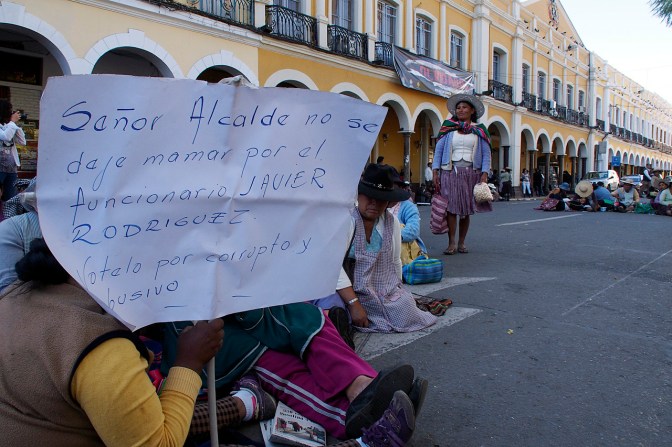 Señor Alcalde no se
deje mamar por el
funcionario JAVIER
RODRIGUEZ.
Votelo por corrupto y
busivo